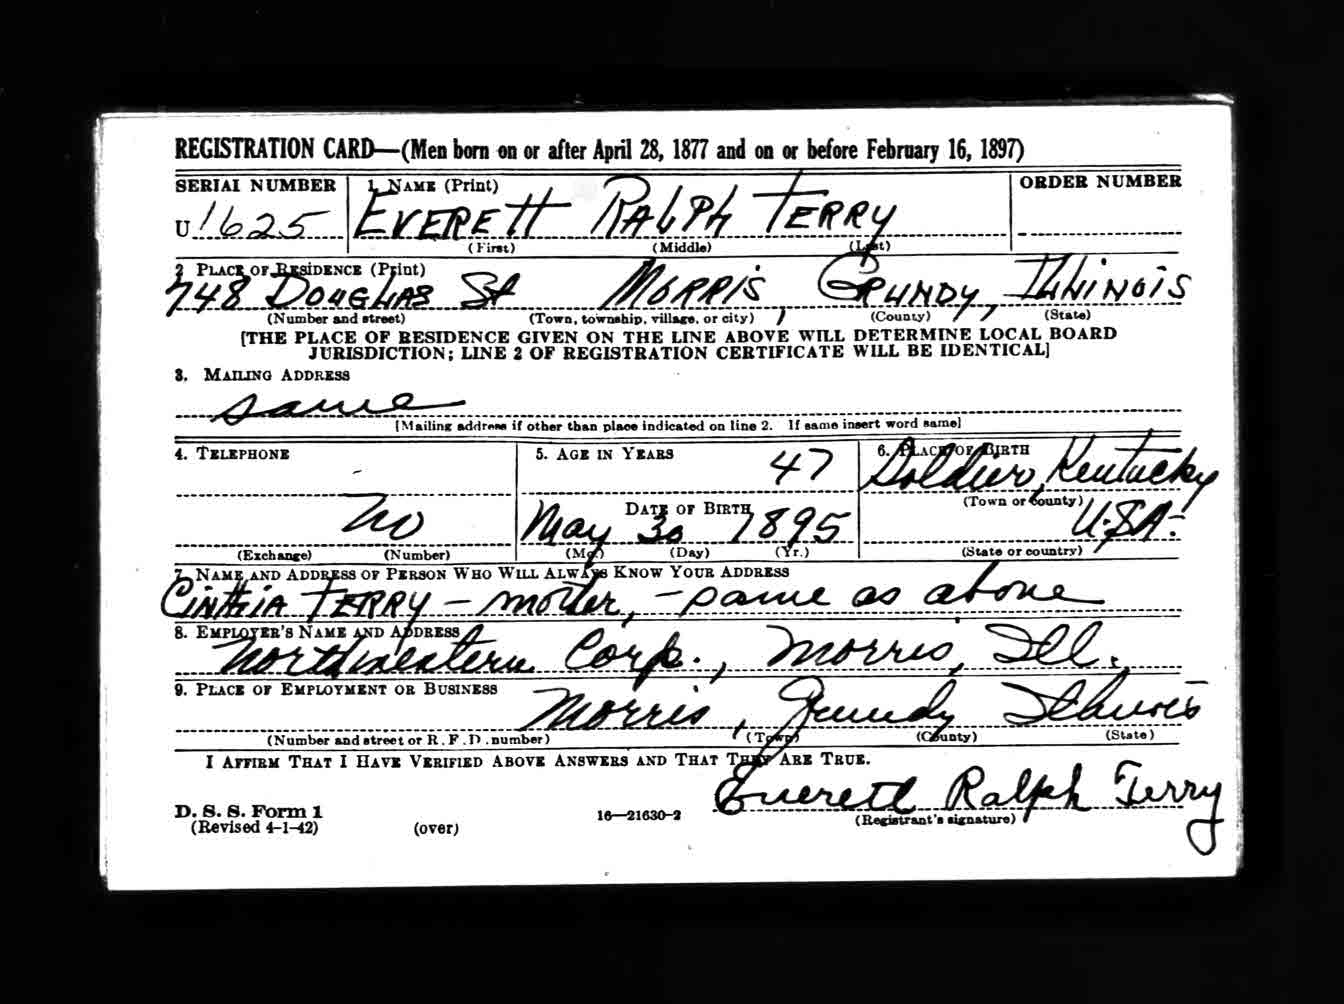 REGISTRATION CARD—(Men born on or after April 28, 1877 and on or before February 16, 1897)
SERIAL NUMBER 1. NAME (Print) ORDER NUMBER
U 1625 EVERETT RALPH TERRY
(First) (Middle) (Last)
2. PLACE OF RESIDENCE (Print)
748 DOUGLAS St MORRIS, GRUNDY, ILLINOIS
(Number and street) (Town, township, village, or city) (County) (State)
[THE PLACE OF RESIDENCE GIVEN ON THE LINE ABOVE WILL DETERMINE LOCAL BOARD
JURISDICTION; LINE 2 OF REGISTRATION CERTIFICATE WILL BE IDENTICAL]
3. MAILING ADDRESS
same
[Mailing address if other than place indicated on line 2. If same insert word same]
4. TELEPHONE 5. AGE IN YEARS 6. PLACE OF BIRTH
47 Soldier, Kentucky
DATE OF BIRTH (Town or county)
no May 30 1895 U.S.A.
(Exchange) (Number) (Mo.) (Day) (Yr.) (State or country)
7. NAME AND ADDRESS OF PERSON WHO WILL ALWAYS KNOW YOUR ADDRESS
CINTHIA TERRY – mother, – same as above
8. EMPLOYER'S NAME AND ADDRESS
Northwestern Corp., Morris, Ill.
9. PLACE OF EMPLOYMENT OR BUSINESS
Morris, Grundy Illinois
(Number and street or R. F. D. number) (Town) (County) (State)
I AFFIRM THAT I HAVE VERIFIED ABOVE ANSWERS AND THAT THEY ARE TRUE.
Everett Ralph Terry
D. S. S. Form 1 16—21630-2 (Registrant's signature)
(Revised 4-1-42) (over)